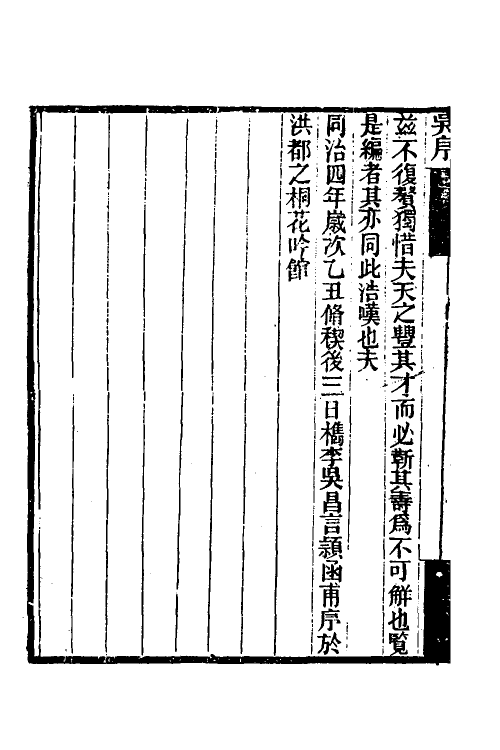 吳序
茲不復贅獨惜夫天之豐其才而必靳其壽爲不可解也覽
是編者其亦同此浩嘆也夫
同治四年歲次乙丑脩稧後三日檇李吳昌言頴函甫序於
洪都之桐花吟館